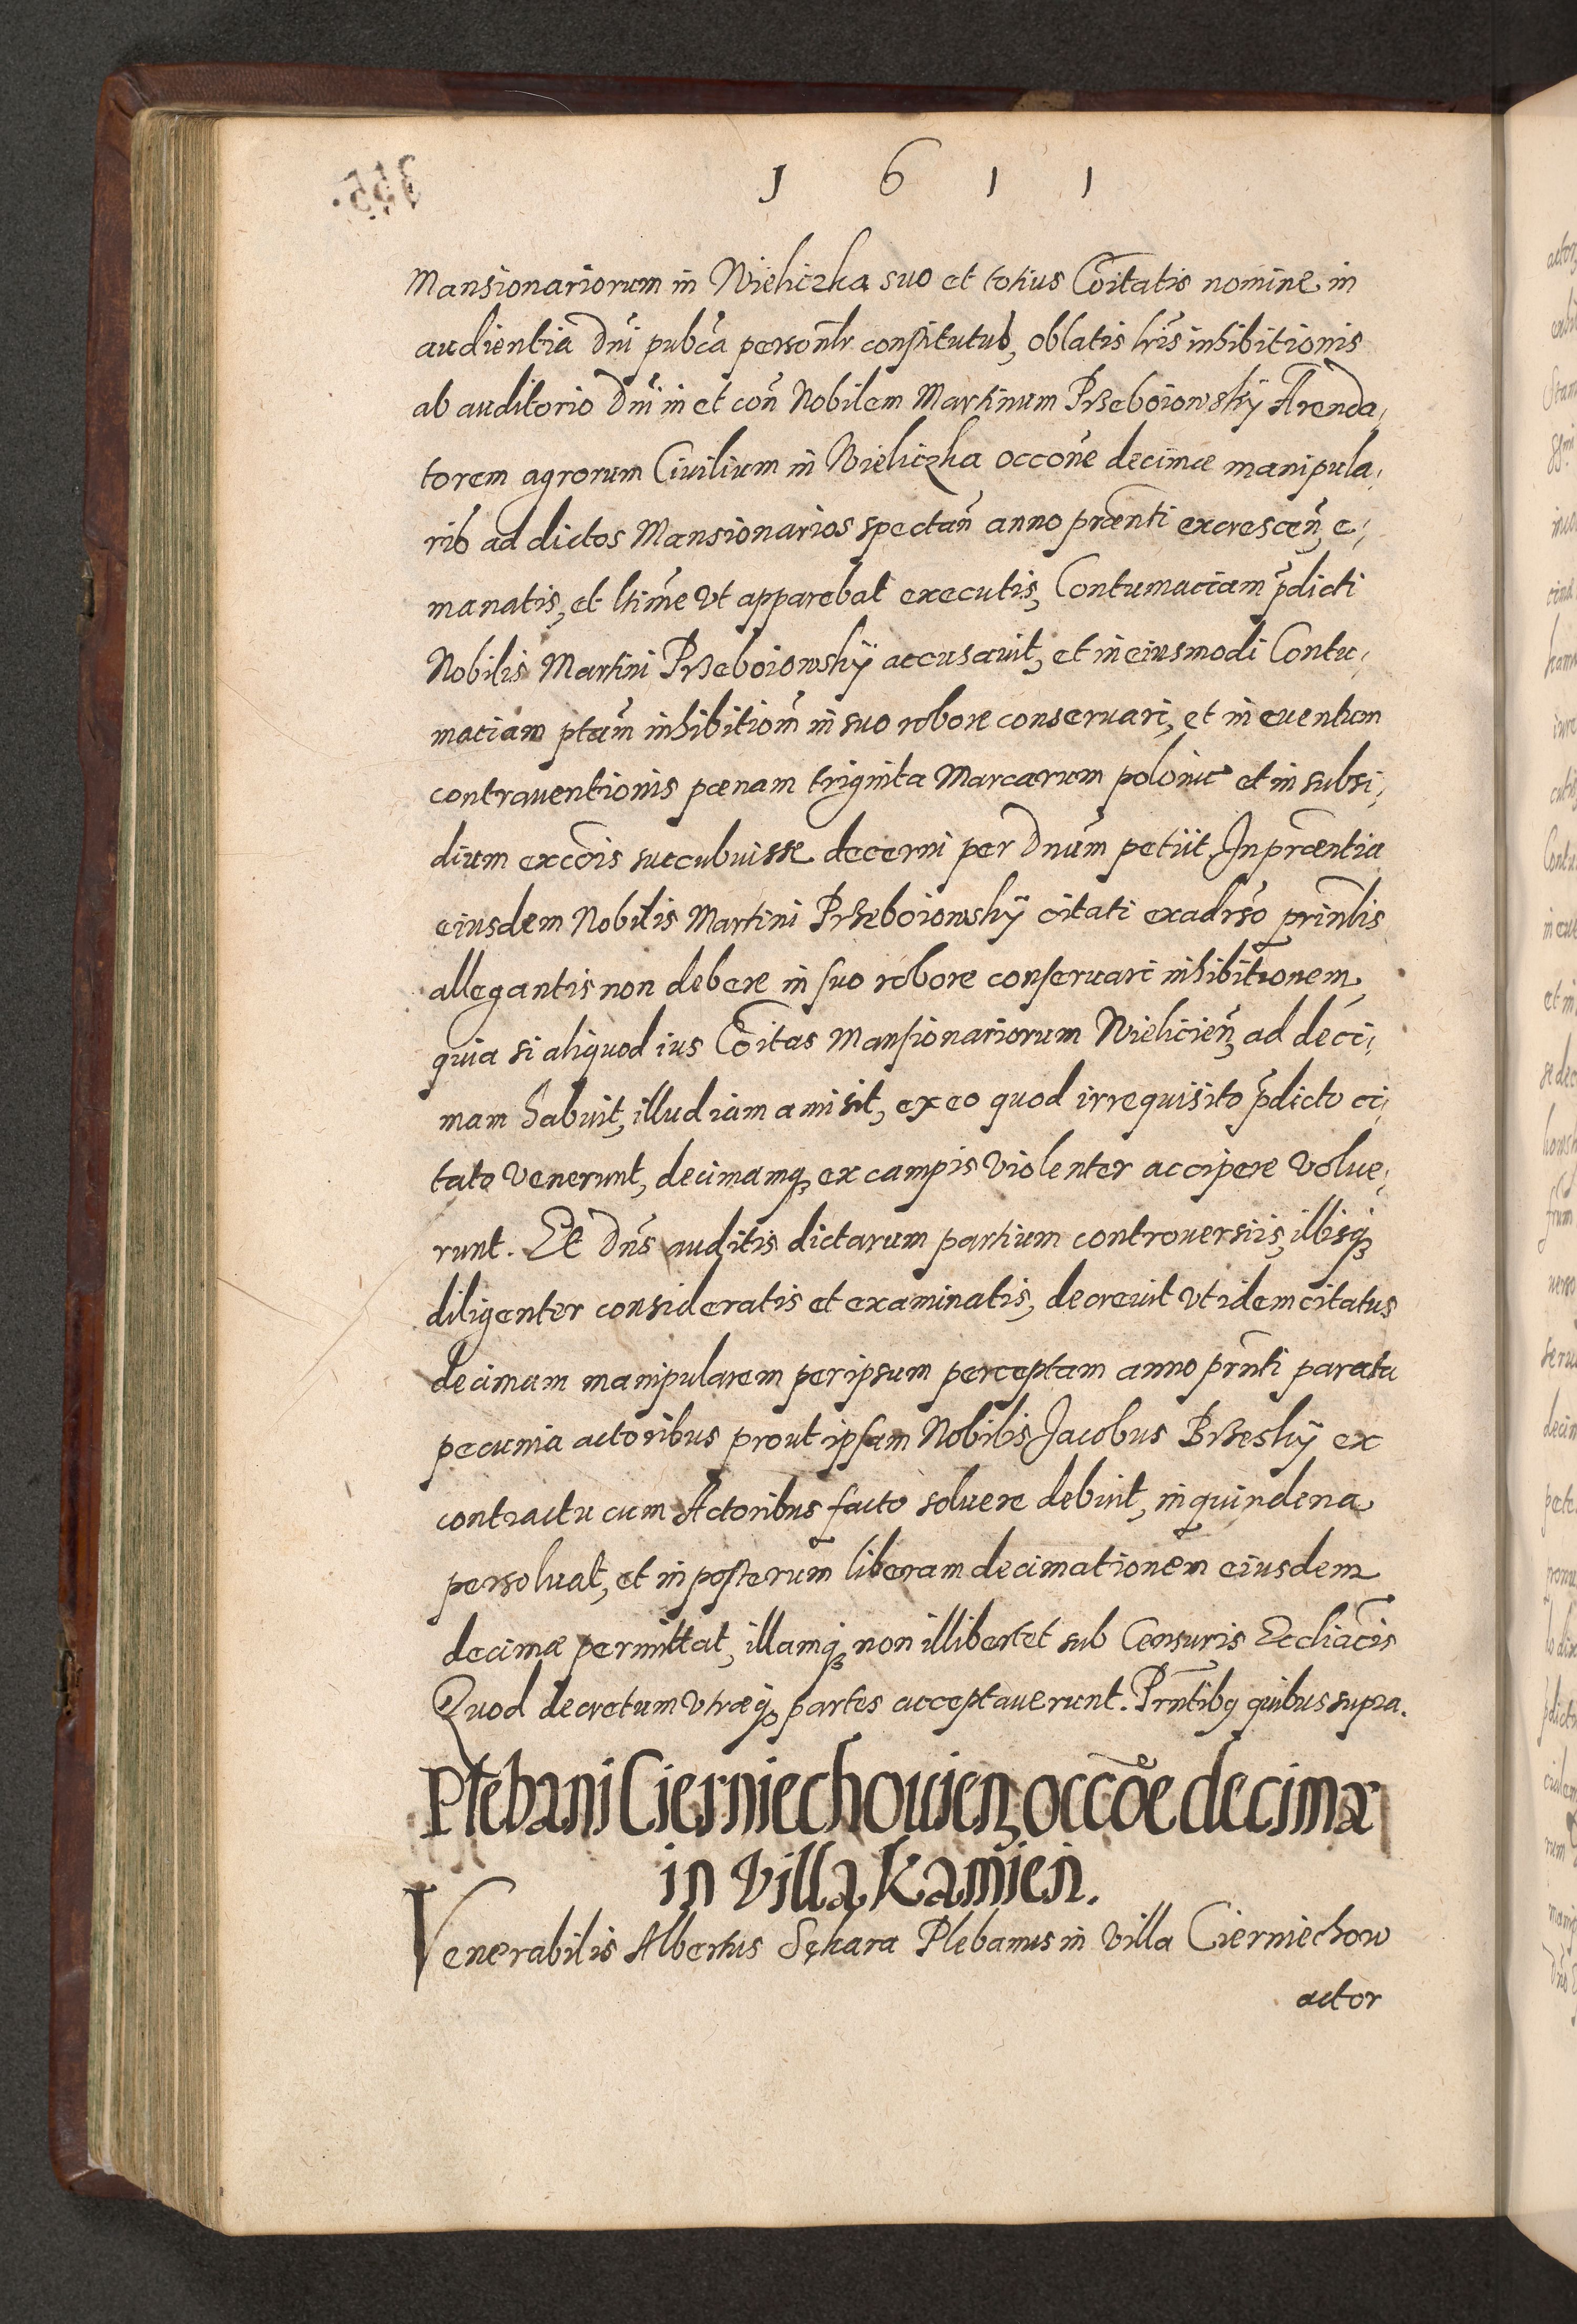 1 6 1 1
Mansionariorum in Wieliczka suo et totius Cõitatis nomine in
audientia Dñi pubca personlr constitutus, oblatis lris inhibitionis
ab auditorio Dñi in et coñ Nobilem Martinum Przeboiowskÿ Arenda,
torem agrorum Ciuilium in Wieliczka occone decimæ manipula,
ris ad dictos Mansionarios spectañ anno prænti excresceñ, e,
manatis, et ltime vt apparebat executis, Contumaciam p̃dicti
Nobilis Martini Przeboiowskÿ accusauit, et in eiusmodi Contu,
maciam ptam̃ inhibitiom̃ in suo robore conseruari, et in euentum
contrauentionis pœnam triginta Marcarum polonic et in subsi,
dium excois succubuisse decerni per Dnum petiit. In præntia
eiusdem Nobilis Martini Przeboiowskÿ citati ex adrso prinlis
allegantis non debere in suo robore conseruari inhibitionem
quia si aliquod ius Cõitas Mansionariorum Wielicień ad deci,
mam habuit, illud iam amisit, ex eo quod irrequisito p̃dicto ci,
tato venerunt, decimamq; ex campis violenter accipere volue,
runt. Et Dñs auditis dictarum partium controuersiis, illisq;
diligenter consideratis et examinatis, decreuit vt idem citatus
decimam manipularem per ipsum perceptam anno prñti parata
pecunia actoribus prout ipsam Nobilis Jacobus Brzeskÿ ex
contractu cum Actoribus facto soluere debuit, in quindena
persoluat, et in posterum liberam decimationem eiusdem
decimæ permittat, illamq; non illibertet sub Censuris Eccliacis
Quod decretum vtræq; partes acceptauerunt. Prñtibq quibus supra.
Plebani Cierniechowień occõe decimæ
in villa Kamień.
Venerabilis Albertus Sękara Plebanus in villa Cierniechow
actor